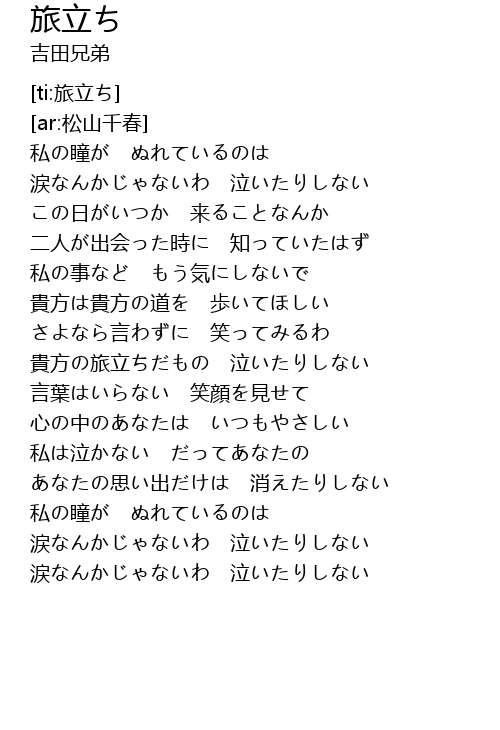 旅立ち
吉田兄弟
[ti:旅立ち]
[ar:松山千春]
私の瞳が　ぬれているのは
涙なんかじゃないわ　泣いたりしない
この日がいつか　来ることなんか
二人が出会った時に　知っていたはず
私の事など　もう気にしないで
貴方は貴方の道を　歩いてほしい
さよなら言わずに　笑ってみるわ
貴方の旅立ちだもの　泣いたりしない
言葉はいらない　笑顔を見せて
心の中のあなたは　いつもやさしい
私は泣かない　だってあなたの
あなたの思い出だけは　消えたりしない
私の瞳が　ぬれているのは
涙なんかじゃないわ　泣いたりしない
涙なんかじゃないわ　泣いたりしない